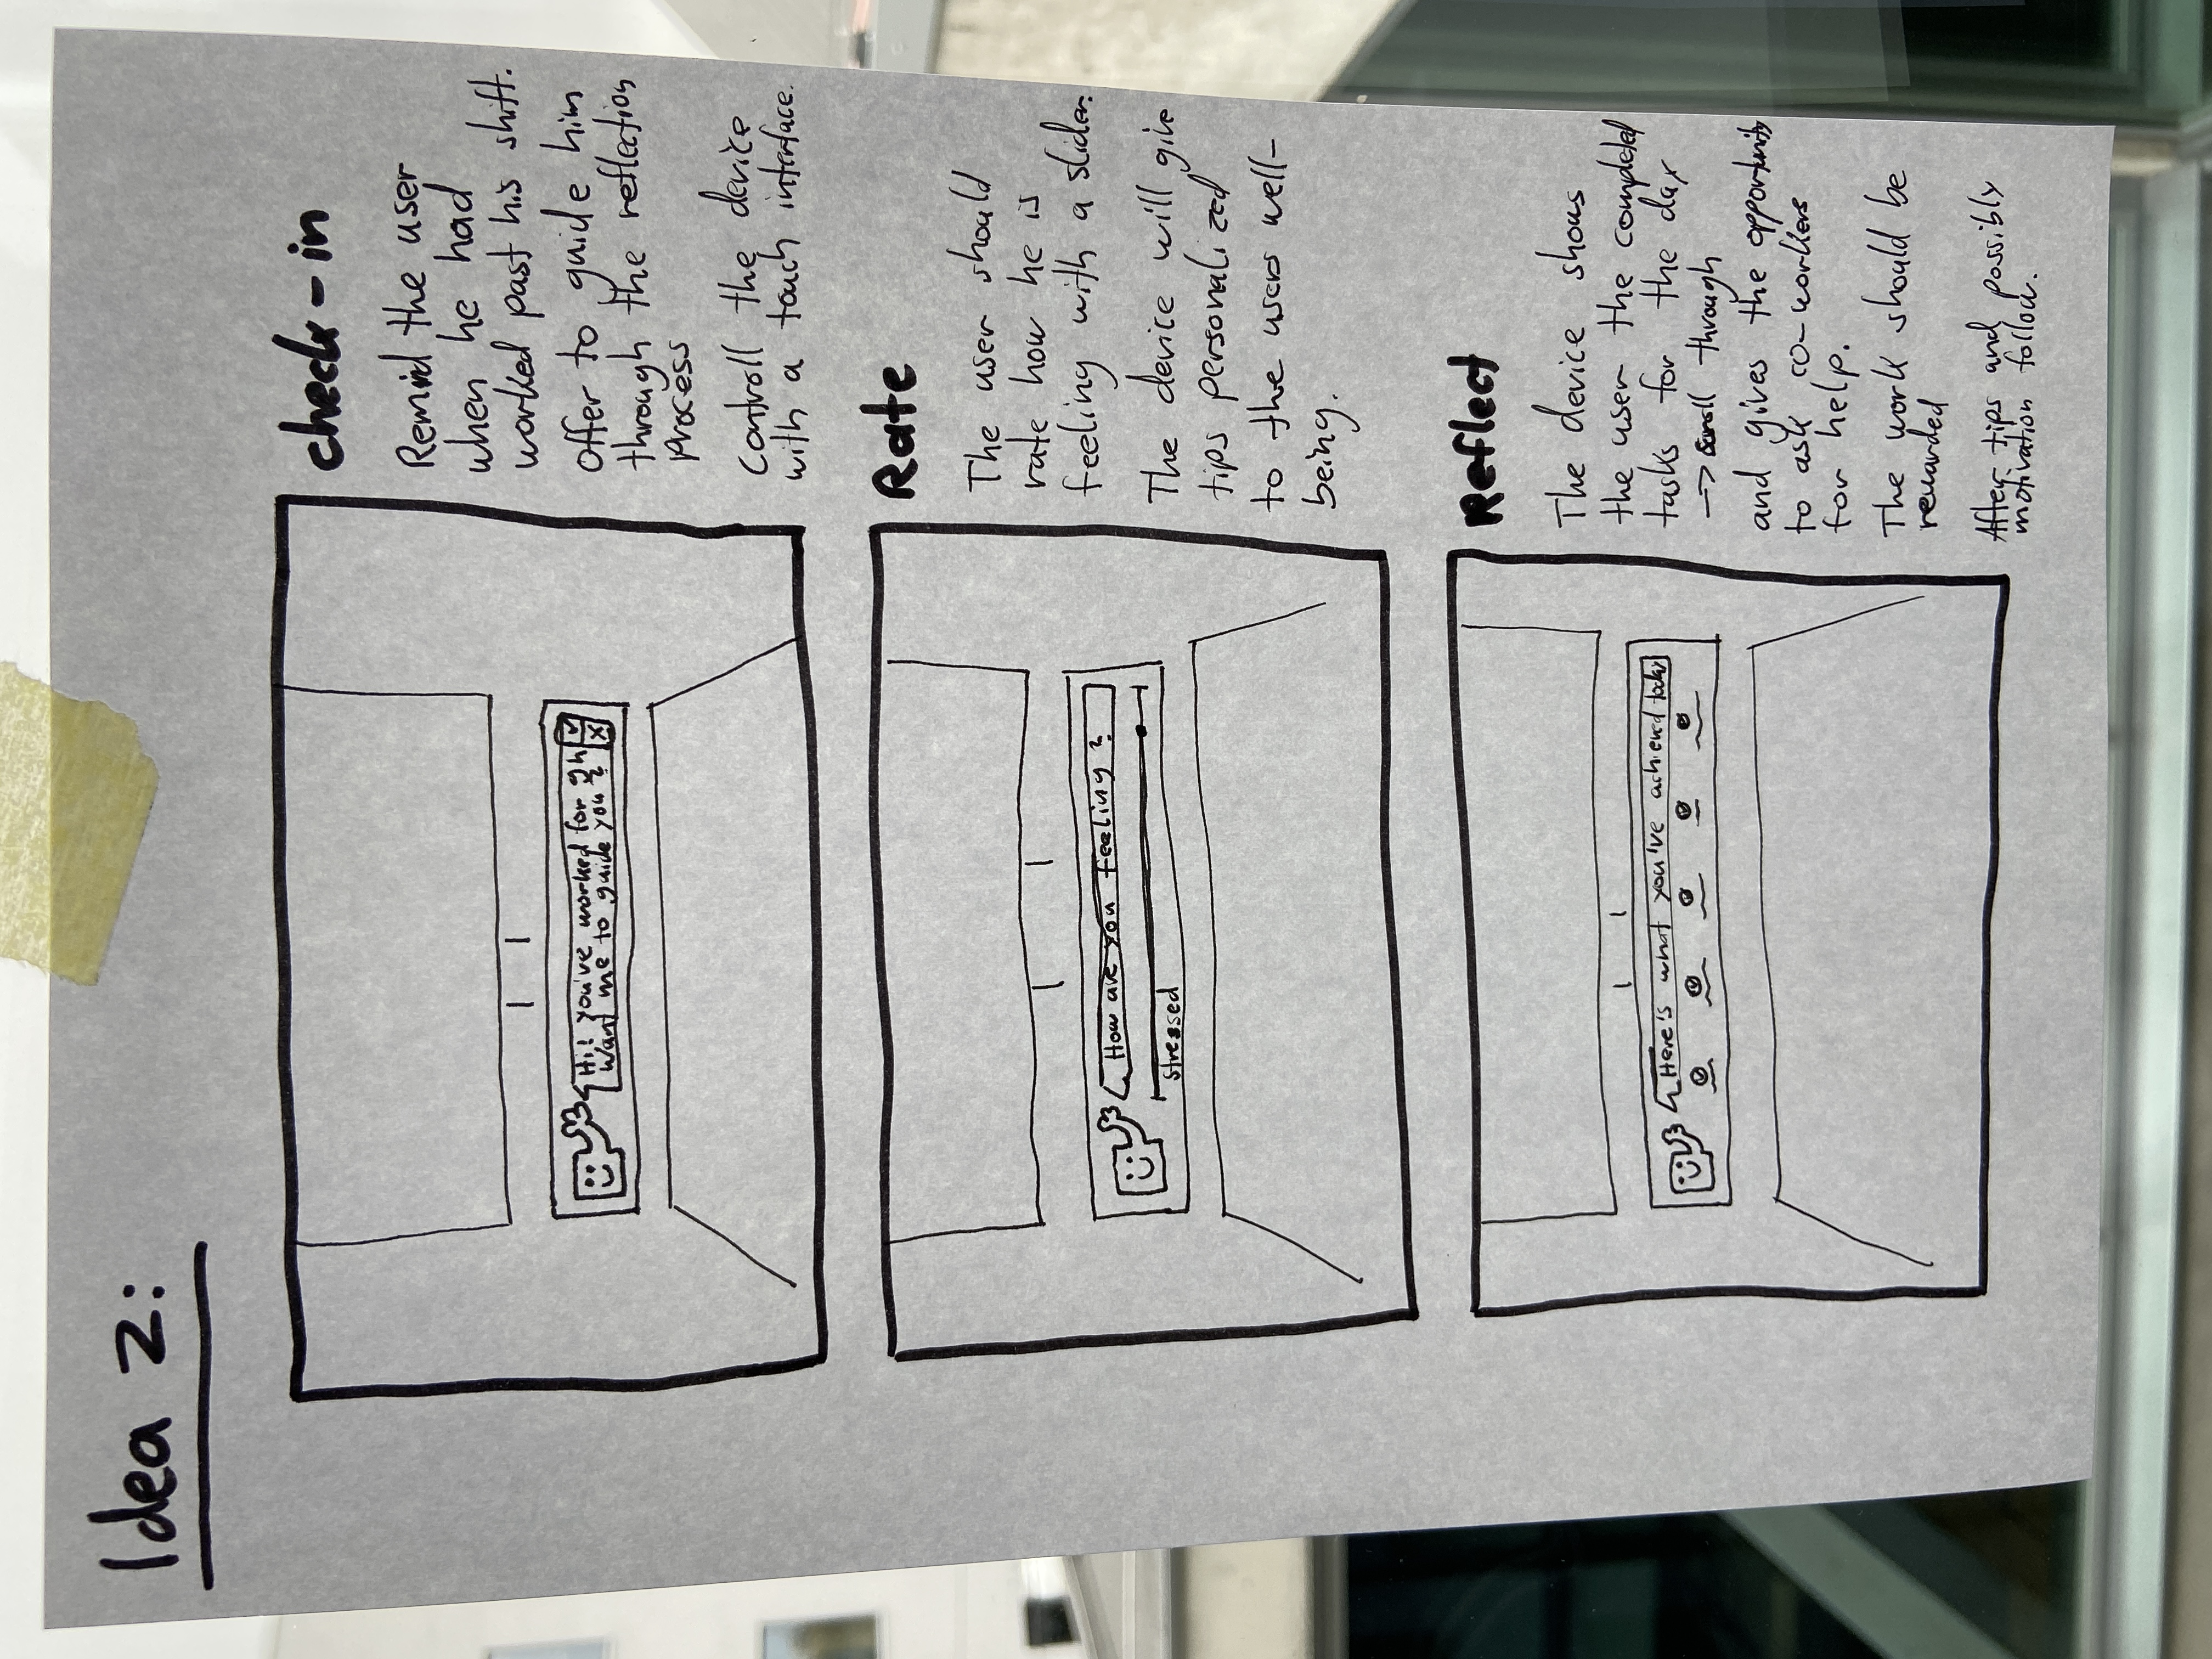 Idea 2:
Hi! You've worked for 9h
Want me to guide you?
check-in
Remind the user
when he had
worked past his shift.
Offer to guide him
through the reflection
process
Controll the device
with a touch interface.
How are you feeling?
stressed
Rate
The user should
rate how he is
feeling with a slider.
The device will give
tips personalized
to the users well-
being.
Here's what you've achieved today
Reflect
The device shows
the user the completed
tasks for the day
-> scroll through
and gives the opportunity
to ask co-workers
for help.
The work should be
rewarded
After tips and possibly
motivation follow.